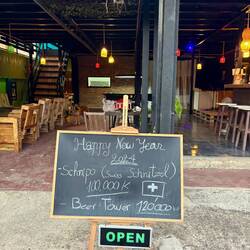 Happy New Year
2024
- Schnipo (Swiss Schnitzel)
100,000K
- Beer Tower 120000
OPEN